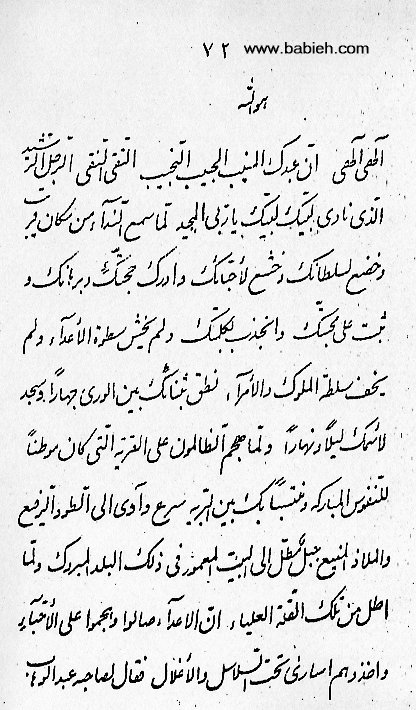 ٧٢ www.babieh.com
هو الله
الهی الهی انّ عبدک المنیب المجیب النجیب التقی النقی الرجل الرشید
الّذی نادی لبّیک لبّیک یا ربّی المجید لمّا سمع النّدآء من مکان قریب
و خضع لسلطانک و خشع لأحبّائک و ادرک حجّتک و برهانک و
ثبت علی محبّتک و انجذب بکلمتک و لم یخش سطوة الأعدآء و لم
یخف سلطة الملوک و الأمرآء نطق بثنائک بین الوری جهاراً و یمجد
لأسمک لیلاً و نهاراً و لمّا هجم الظالمون علی القریة الّتی کان موطناً
للنّفوس المبارکه و بک بین البریّه سرع و آوی الی الطّود الرفیع
و الملاذ المنیع جبل مُطلّ الی البیت المعمور فی ذلک البلد المبروک و لمّا
اطل من تلک القلّة العلیاء انّ الاعدآء صالوا و هجموا علی الأحبّآء
و اخذوهم اساری تحت السّلاسل و الأغلال فقال لصاحبه عبد الوهاب